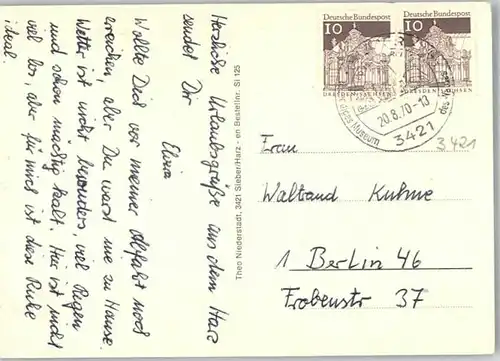 Herzliche Urlaubsgrüße aus dem Harz
sendet Dir
Elvira
Wollte Dich vor meiner Abfahrt noch
erreichen, aber Du warst nie zu Hause.
Wetter ist nicht besonders, viel Regen
und schon mächtig kalt. Hier ist nicht
viel los, aber für mich ist diese Ruhe
ideal.
Theo Niederstadt, 3421 Sieber/Harz - en Besteller: Si 125
Deutsche Bundespost
10
DRESDEN/SACHSEN
Deutsche Bundespost
10
DRESDEN/SACHSEN
20.8.70-10
3421
Museum
3421
Frau
Waltraud Kuhne
1 Berlin 46
Frobenstr 37